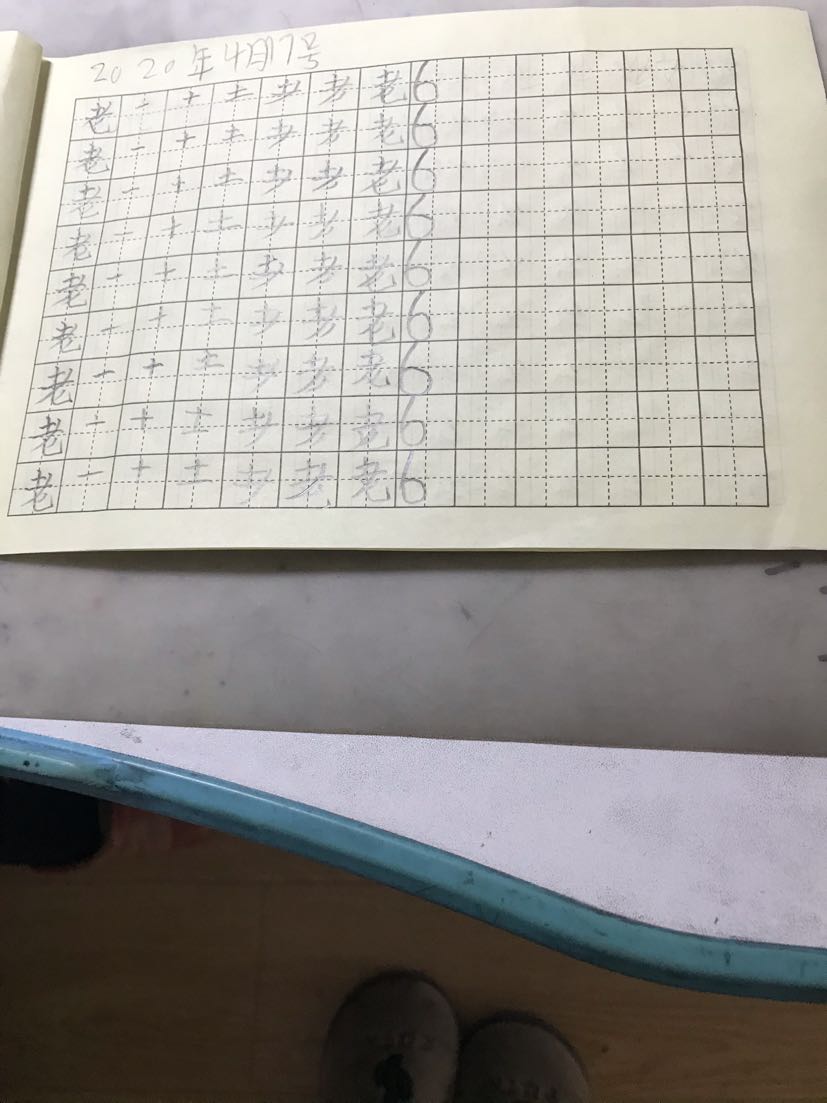 2020年4月17号
老 一 十 土 耂 老 老 6
老 一 十 土 耂 老 老 6
老 一 十 土 耂 老 老 6
老 一 十 土 耂 老 老 6
老 一 十 土 耂 老 老 6
老 一 十 土 耂 老 老 6
老 一 十 土 耂 老 老 6
老 一 十 土 耂 老 老 6
老 一 十 土 耂 老 老 6